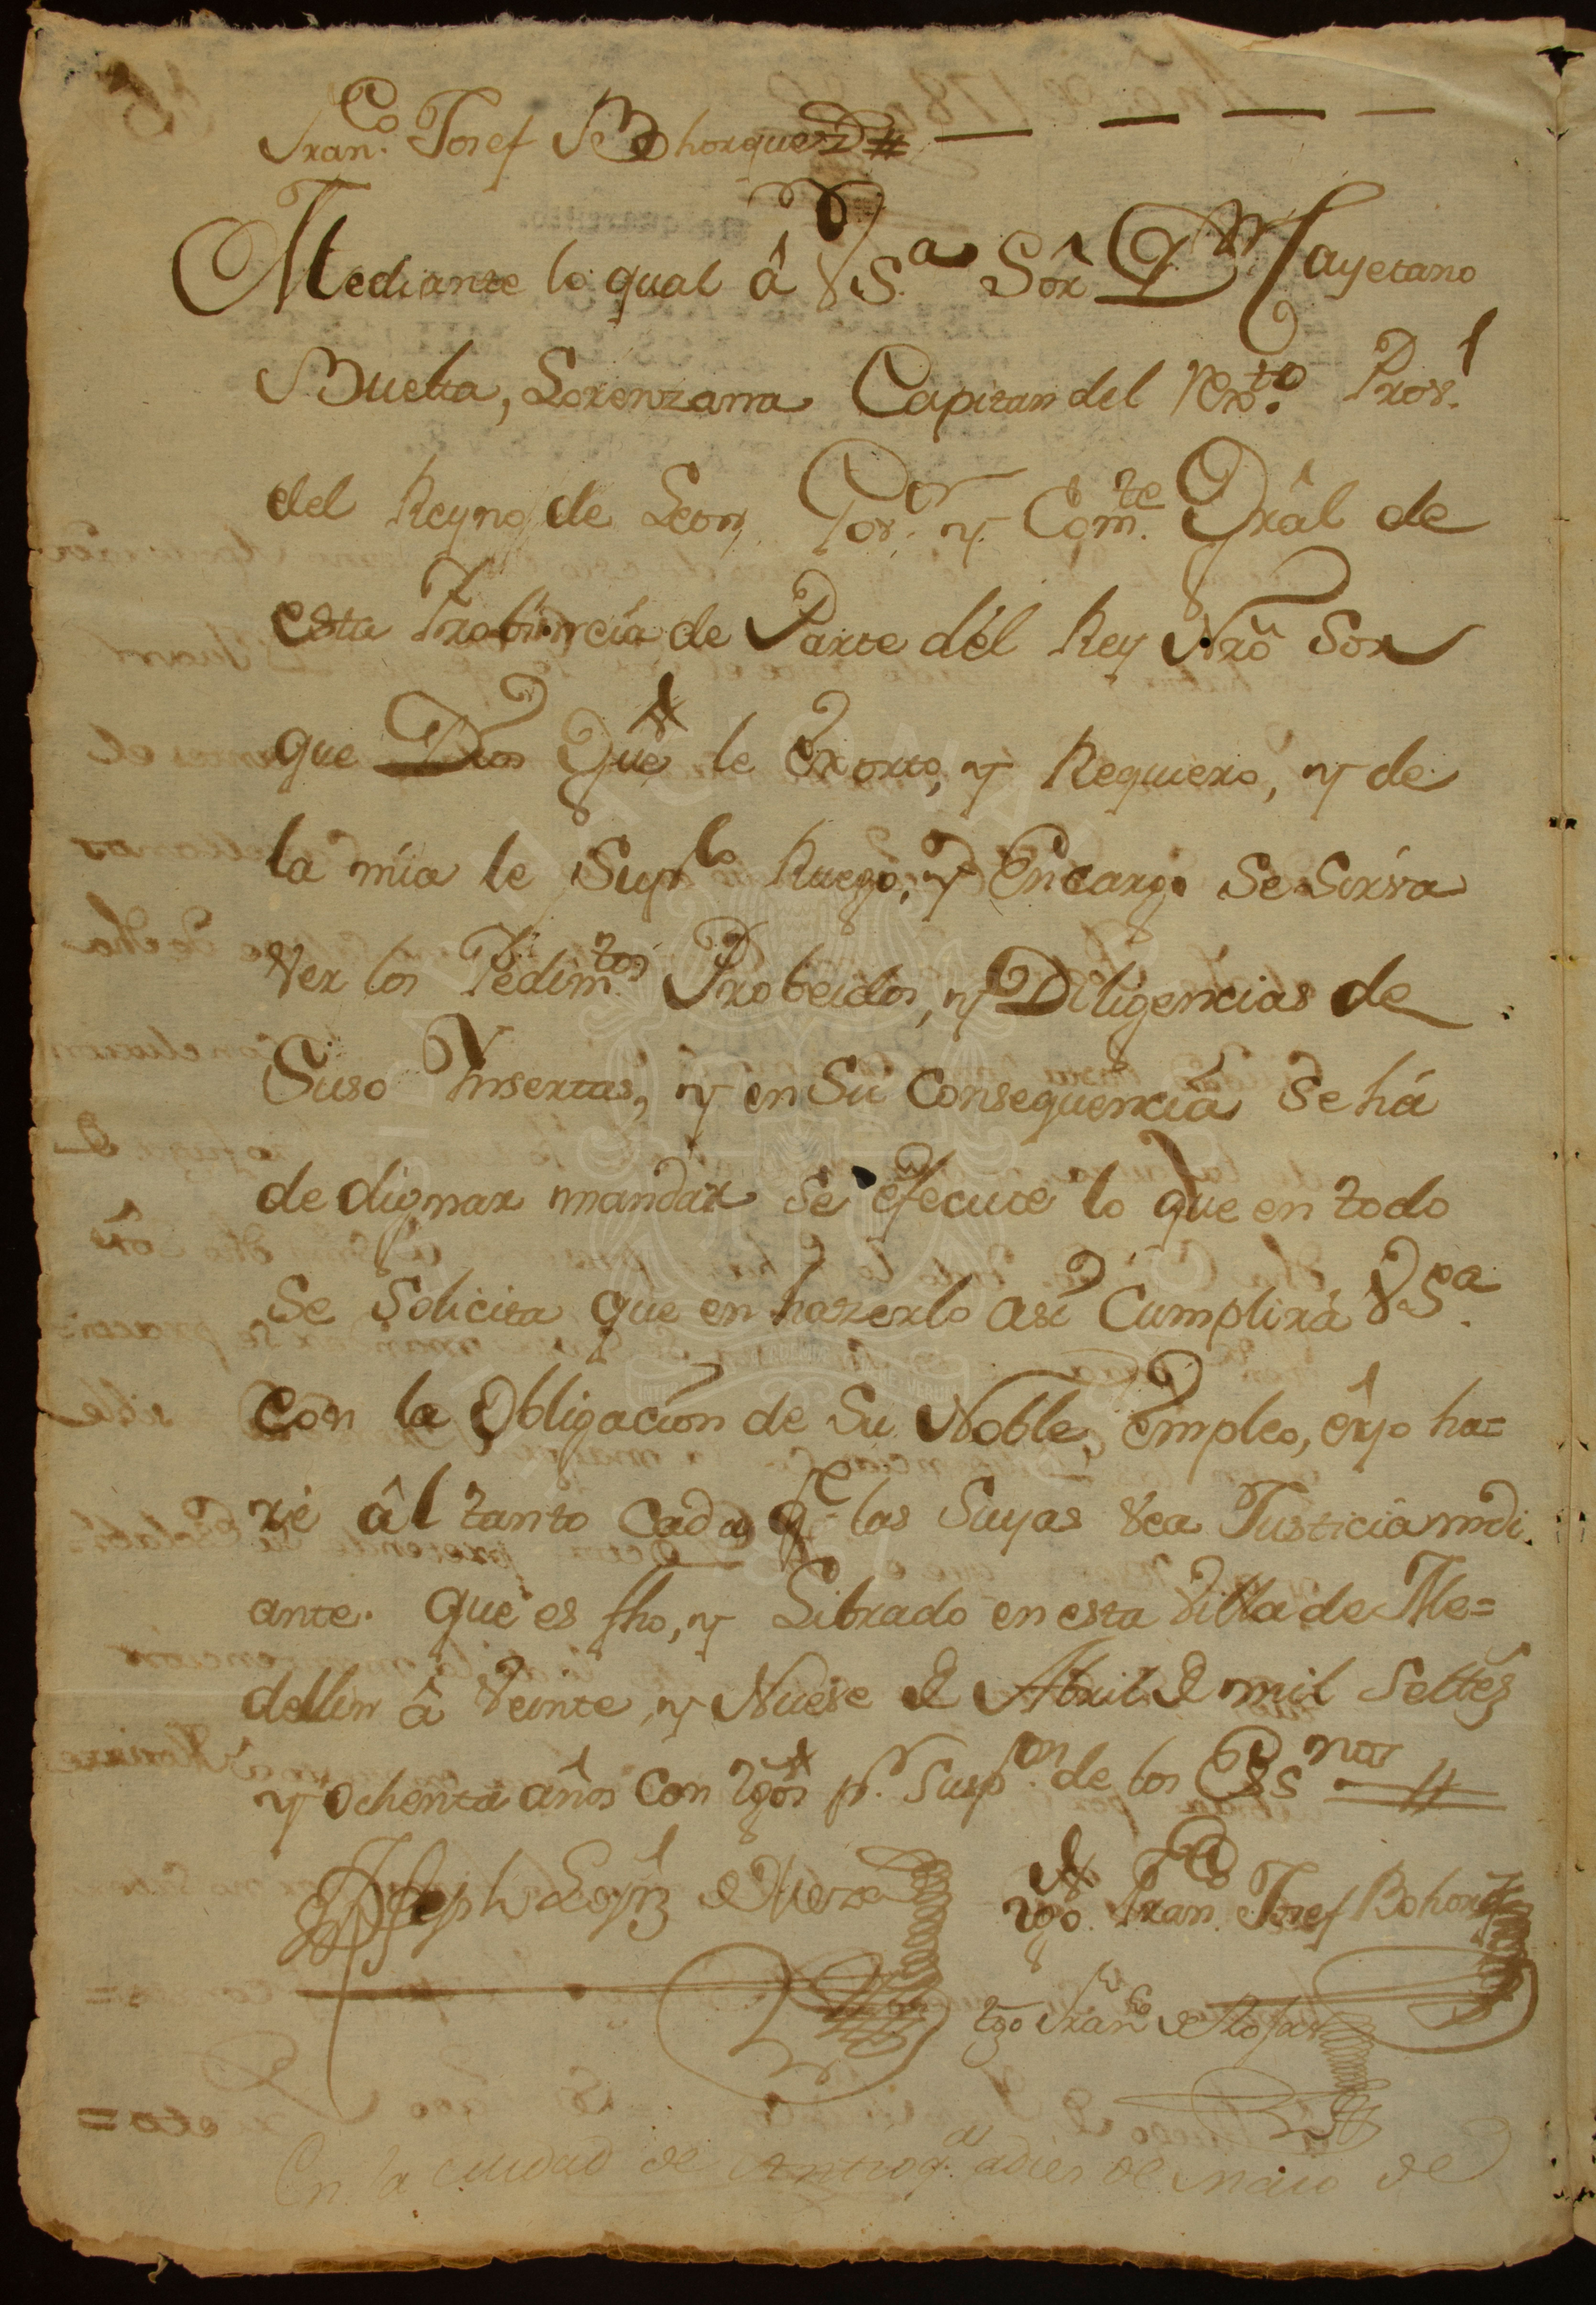 Fran.co Josef Bohorquez #
Mediante lo qual â VS.a Sôr Dn Cayetano
Buelta, Lorenzana Capitan del Rex.to Prov.l
del Reyno de Leon, Gov.or y Com.te Grâl de
esta Probincia de Parte del Rey Nrô Sor
que Dios Gue le Exorto, y Requiero, y de
la mia le Sup.co Ruego, y Encargo Se Sirva
Ver los Pedim.tos Probeidos, y Diligencias de
Suso Ynsertas, y en Su Consequencia Se há
de dignar mandar Se efecute lo que en todo
Se Solicita que en hazerlo asi Cumplirá VS.a
con la Obligacion de Su Noble, empleo, é yo ha=
ré âl tanto Cada q.e las Suyas Vea Justicia mdi
ante. que es fho, y Librado en esta Villa de Me=
dellin â Veinte, y Nueve de Abril de mil Settes
y Ochenta años Con tgôs p.r Susp.on de los Ess.nos
Joseph Lopz de Mesa
tgo. Fran.co Josef Bohorqz
tgo Fran.co de
En la ciudad de Antioq.a a dies de Maio de